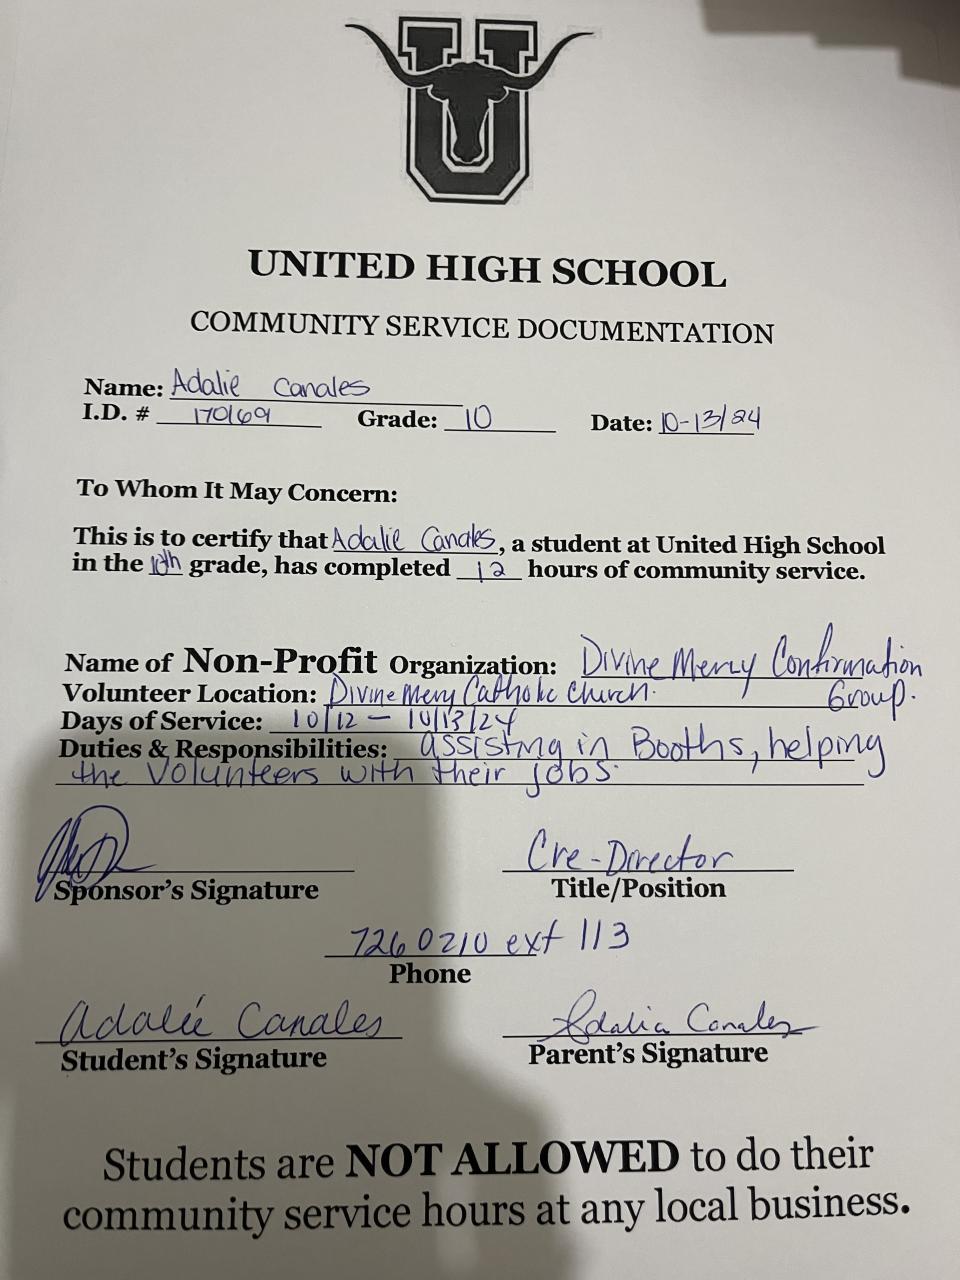 U
UNITED HIGH SCHOOL
COMMUNITY SERVICE DOCUMENTATION
Name: Adalie Canales
I.D. # 170169 Grade: 10 Date: 10-13/24
To Whom It May Concern:
This is to certify that Adalie Canales, a student at United High School
in the 10th grade, has completed 12 hours of community service.
Name of Non-Profit Organization: Divine Mercy Confirmation
Group.
Volunteer Location: Divine Mercy Catholic Church.
Days of Service: 10/12 - 10/13/24
Duties & Responsibilities: assisting in Booths, helping
the Volunteers with their jobs.
Cre-Director
Sponsor's Signature Title/Position
726 0210 ext 113
Phone
Adalie Canales Idalia Canales
Student's Signature Parent's Signature
Students are NOT ALLOWED to do their
community service hours at any local business.